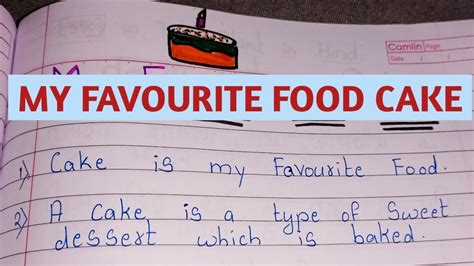 Camlin Page
Date
MY FAVOURITE FOOD CAKE
1) Cake is my Favourite Food.
2) A Cake is a type of Sweet
dessert which is baked.